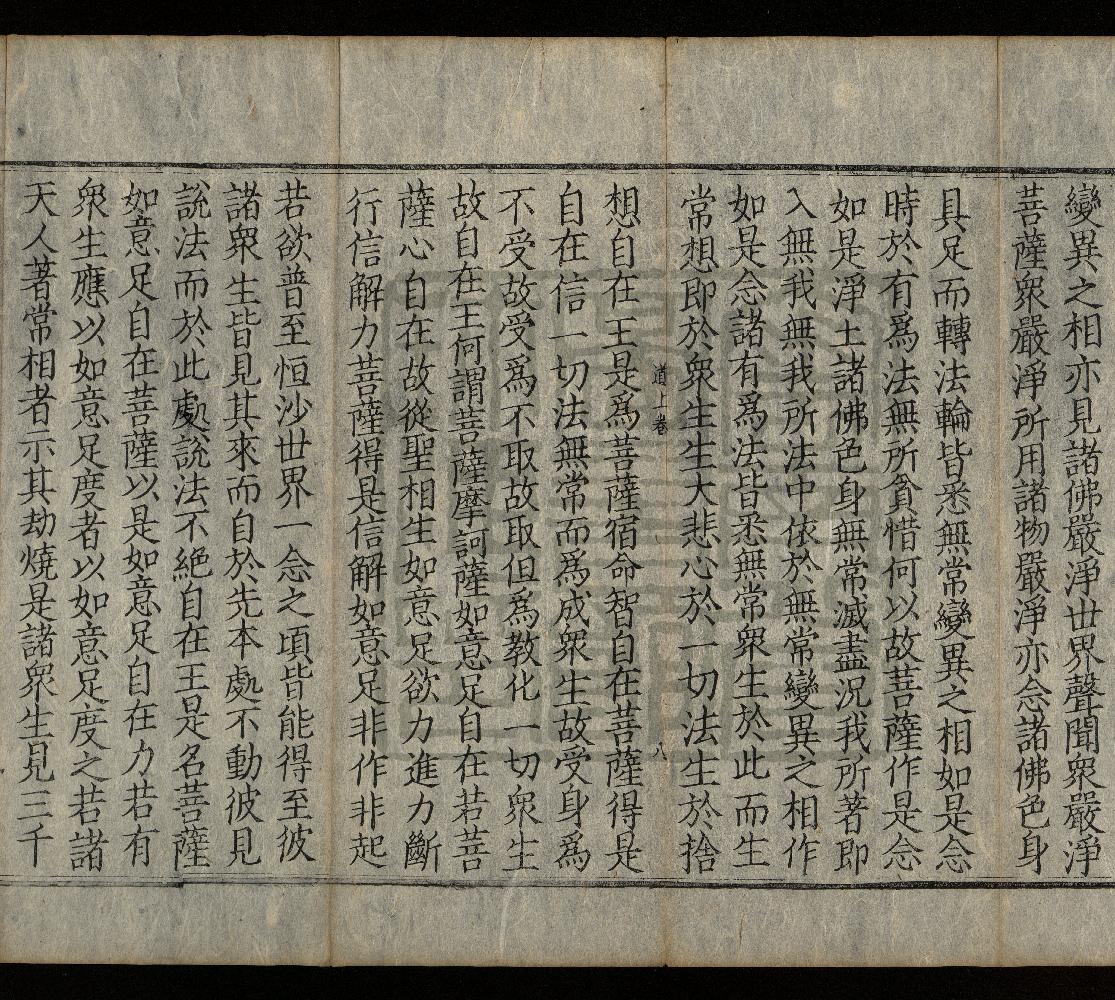 變異之相亦見諸佛嚴淨世界聲聞衆嚴淨
菩薩衆嚴淨所用諸物嚴淨亦念諸佛色身
具足而轉法輪皆悉無常變異之相如是念
時於有爲法無所貪惜何以故菩薩作是念
如是淨土諸佛色身無常滅盡況我所著即
入無我無我所法中依於無常變異之相作
如是念諸有爲法皆悉無常衆生於此而生
常想即於衆生生大悲心於一切法生於捨
道上卷 八
想自在王是爲菩薩宿命智自在菩薩得是
自在信一切法無常而爲成衆生故受身爲
不受故受爲不取故取但爲教化一切衆生
故自在王何謂菩薩摩訶薩如意足自在若菩
薩心自在故從聖相生如意足欲力進力斷
行信解力菩薩得是信解如意足非作非起
若欲普至恒沙世界一念之頃皆能得至彼
諸衆生皆見其來而自於先本處不動彼見
說法而於此處說法不絕自在王是名菩薩
如意足自在菩薩以是如意足自在力若有
衆生應以如意足度者以如意足度之若諸
天人著常相者示其劫燒是諸衆生見三千